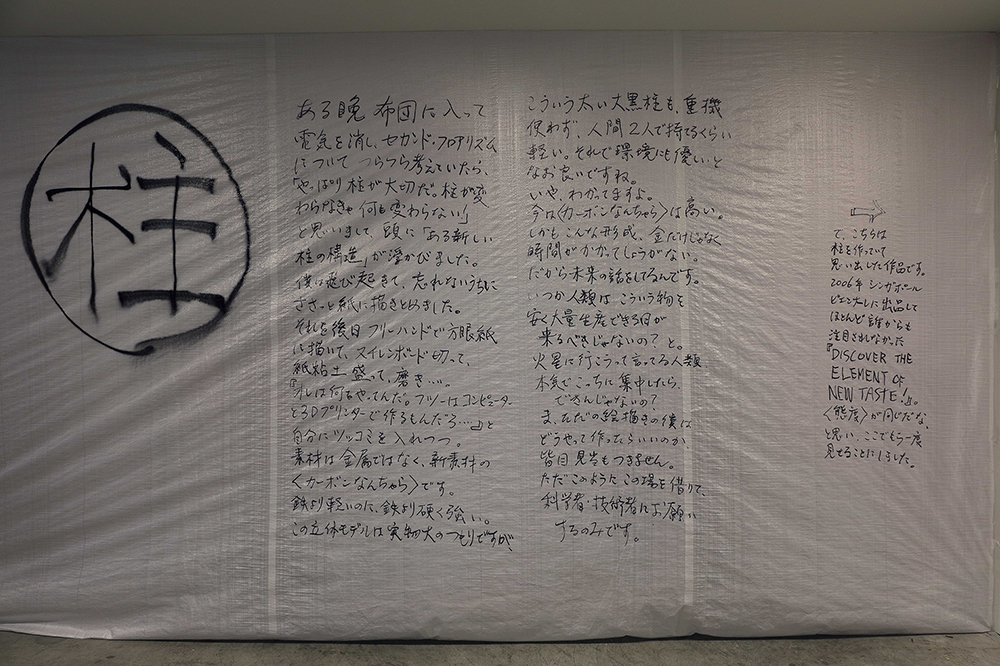 柱
ある晩 布団に入って
電気を消し、セカンド・フロアリズム
について つらつら考えていたら、
「やっぱり柱が大切だ。柱が変
わらなきゃ何も変わらない」
と思いまして、頭に「ある新しい
柱の構造」が浮かびました。
僕は飛び起きて、忘れないうちに
ささっと紙に描きとめました。
それを後日フリーハンドで方眼紙
に描いて、スイレンボード切って、
紙粘土盛って、磨き….
『オレは何をやってんだ。フツーはコンピューター
と3Dプリンターで作るもんだろ…』と
自分にツッコミを入れつつ。
素材は金属ではなく、新素材の
〈カーボンなんちゃら〉です。
鉄より軽いのに、鉄より硬く強い。
この立体モデルは実物大のつもりですが、
こういう太い大黒柱も、重機
使わず、人間2人で持てるくらい
軽い。それで環境にも優しいと
なお良いですね。
いや、わかってますよ。
今は〈カーボンなんちゃら〉は高い。
しかもこんな形成、金だけじゃなく
時間がかかってしょうがない。
だから未来の話をしてるんです。
いつか人類は、こういう物を
安く大量生産できる日が
来るべきじゃないの？と。
火星に行こうって言ってる人類、
本気でこっちに集中したら、
できんじゃないの？
ま、ただの絵描きの僕は
どうやって作ったらいいのか
皆目見当もつきません。
ただこのようにこの場を借りて、
科学者・技術者にお願い
するのみです。
で、こちらは
柱を作っていて
思い出した作品です。
2006年 シンガポール
ビエンナーレに出品して
ほとんど誰からも
注目されなかった
『DISCOVER THE
ELEMENT OF
NEW TASTE!』。
〈態度〉が同じだな、
と思い、ここでもう一度
見せることにしました。